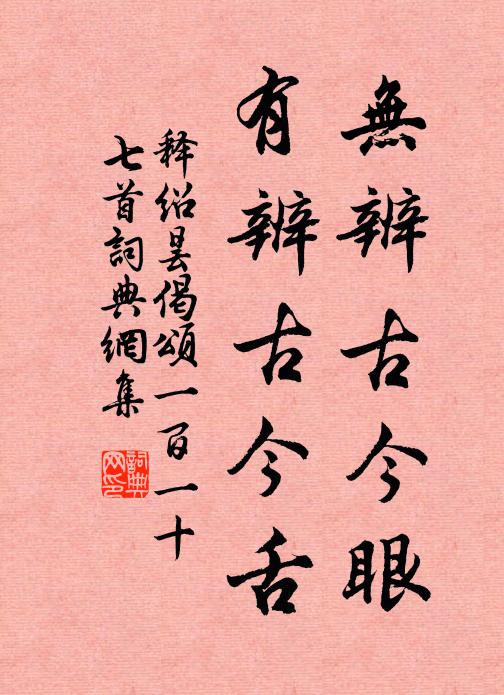 無辨古今眼
有辨古今舌
释绍昙偈頌一百一十
七首詞典網集
詞典网印